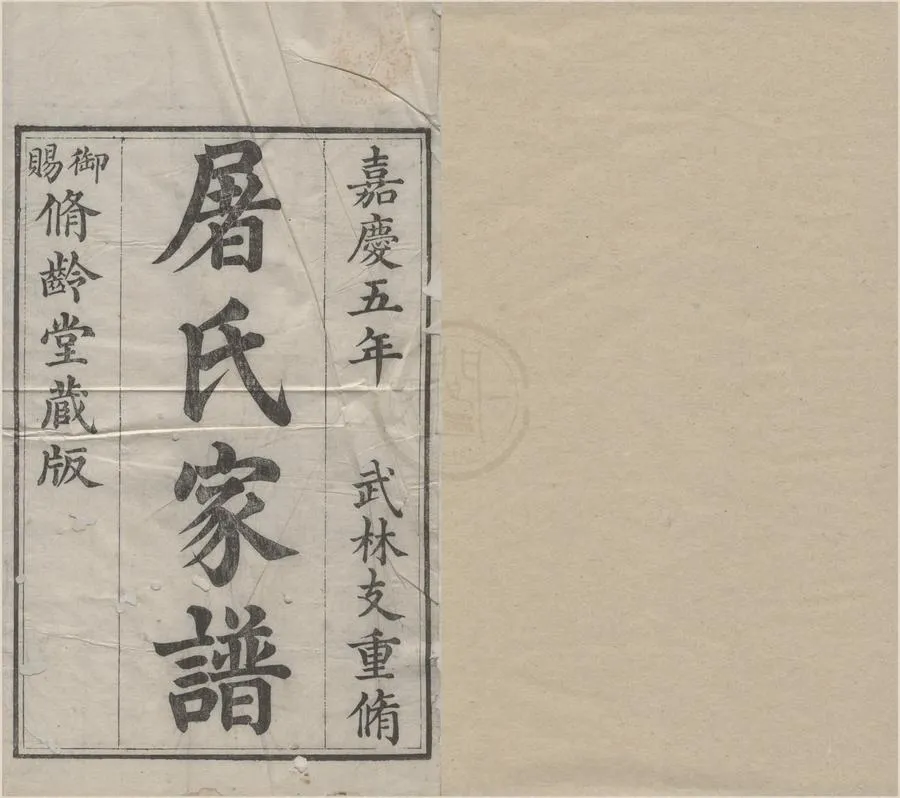 嘉慶五年 武林支重脩
屠氏家譜
御賜脩齡堂藏版